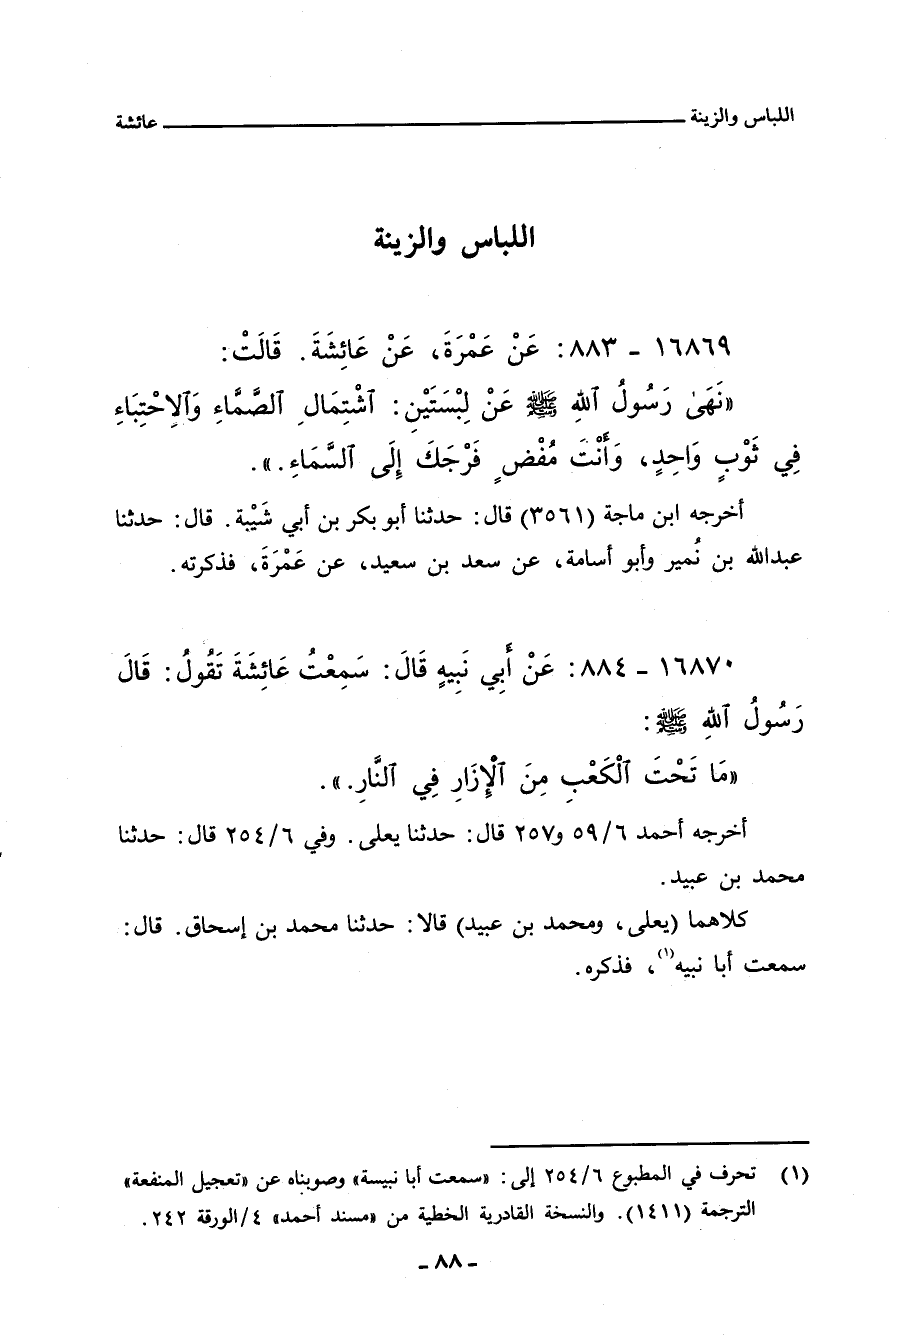 اللباس والزينة ـــــــــــــــــــــــــــــ عائشة
اللباس والزينة
١٦٨٦٩ - ٨٨٣: عَنْ عَمْرَةَ، عَنْ عَائِشَةَ. قَالَتْ:
«نَهَىٰ رَسُولُ ٱللهِ ﷺ عَنْ لِبْسَتَيْنِ: ٱشْتِمَالِ ٱلصَّمَّاءِ وَٱلِاحْتِبَاءِ
فِي ثَوْبٍ وَاحِدٍ، وَأَنْتَ مُفْضٍ فَرْجَكَ إِلَى ٱلسَّمَاءِ.».
أخرجه ابن ماجة (٣٥٦١) قال: حدثنا أبو بكر بن أبي شَيْبة. قال: حدثنا
عبدالله بن نُمير وأبو أسامة، عن سعد بن سعيد، عن عَمْرَةَ، فذكرته.
١٦٨٧٠ - ٨٨٤: عَنْ أَبِي نَبِيهٍ قَالَ: سَمِعْتُ عَائِشَةَ تَقُولُ: قَالَ
رَسُولُ ٱللهِ ﷺ:
«مَا تَحْتَ ٱلْكَعْبِ مِنَ ٱلْإِزَارِ فِي ٱلنَّارِ.».
أخرجه أحمد ٥٩/٦ و٢٥٧ قال: حدثنا يعلى. وفي ٢٥٤/٦ قال: حدثنا
محمد بن عبيد.
كلاهما (يعلى، ومحمد بن عبيد) قالا: حدثنا محمد بن إسحاق. قال:
سمعت أبا نبيه(١)، فذكره.
(١) تحرف في المطبوع ٢٥٤/٦ إلى: «سمعت أبا نبيسة» وصوبناه عن «تعجيل المنفعة»
الترجمة (١٤١١). والنسخة القادرية الخطية من «مسند أحمد» ٤/الورقة ٢٤٢.
- ٨٨ -